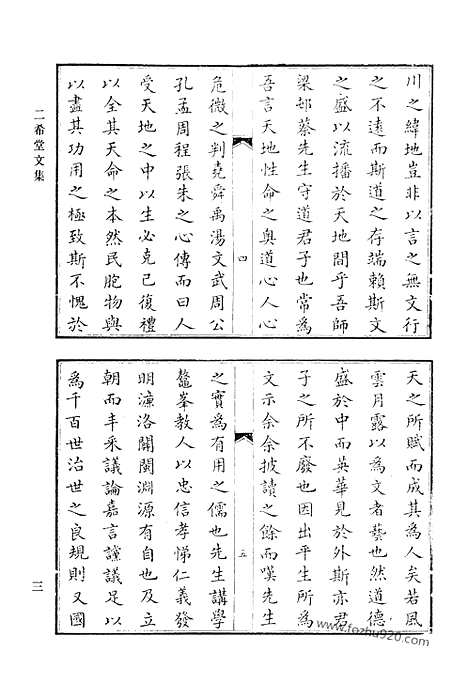 川之緯地豈非以言之無文行
之不遠而斯道之存端賴斯文
之盛以流播於天地間乎吾師
梁邨蔡先生守道君子也常為
吾言天地性命之奧道心人心
四
危微之判堯舜禹湯文武周公
孔孟周程張朱之心傳而曰人
受天地之中以生必克己復禮
以全其天命之本然民胞物與
以盡其功用之極致斯不愧於
二希堂文集
天之所賦而成其為人矣若風
雲月露以為文者藝也然道德
盛於中而英華見於外斯亦君
子之所不廢也因出平生所為
文示余余披讀之餘而嘆先生
五
之實為有用之儒也先生講學
鼇峯教人以忠信孝悌仁義發
明濂洛關閩淵源有自及立
朝而丰采議論嘉言讜議足以
為千百世治世之良規則又國
三
www.fozhu920.com